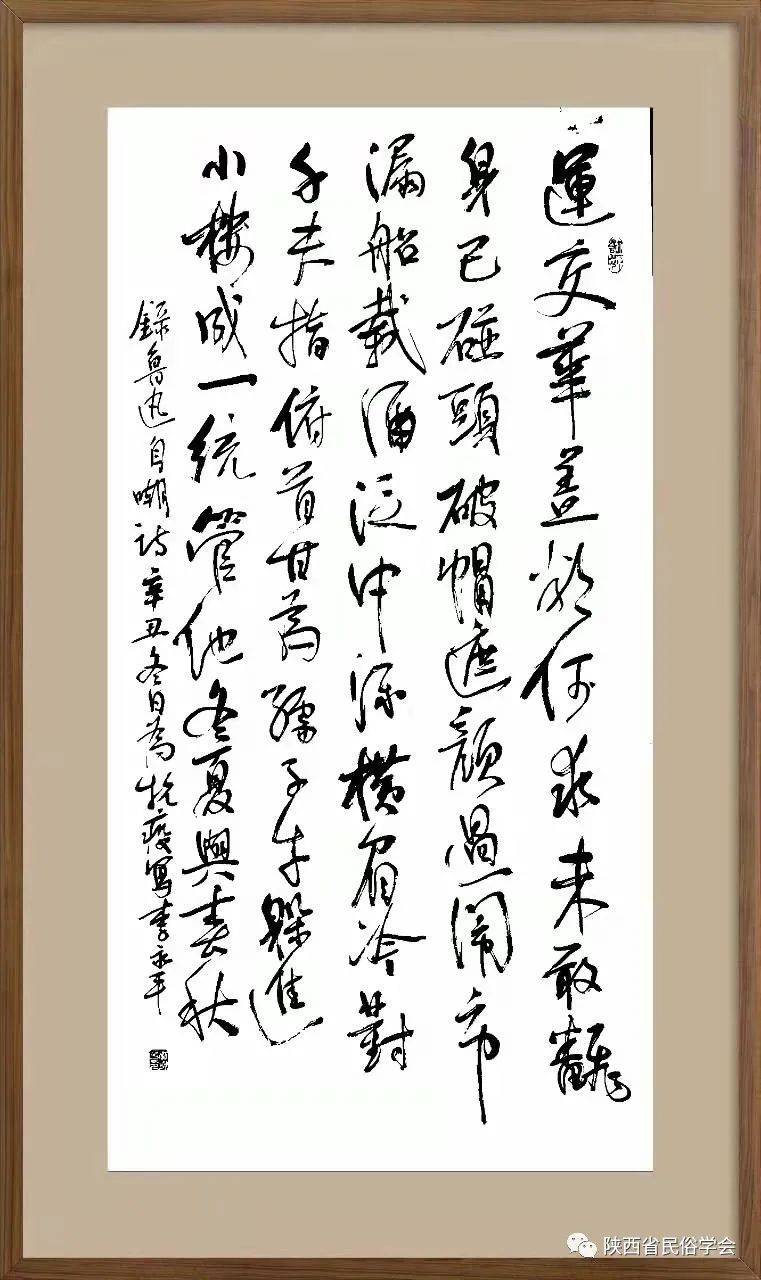 運交華蓋欲何求未敢飜
身已碰頭破帽遮顏過鬧市
漏船載酒泛中流橫眉冷對
千夫指俯首甘為孺子牛躲進
小樓成一統管他冬夏與春秋
錄魯迅自嘲詩辛丑冬日為抗疫寫李永平
陕西省民俗学会